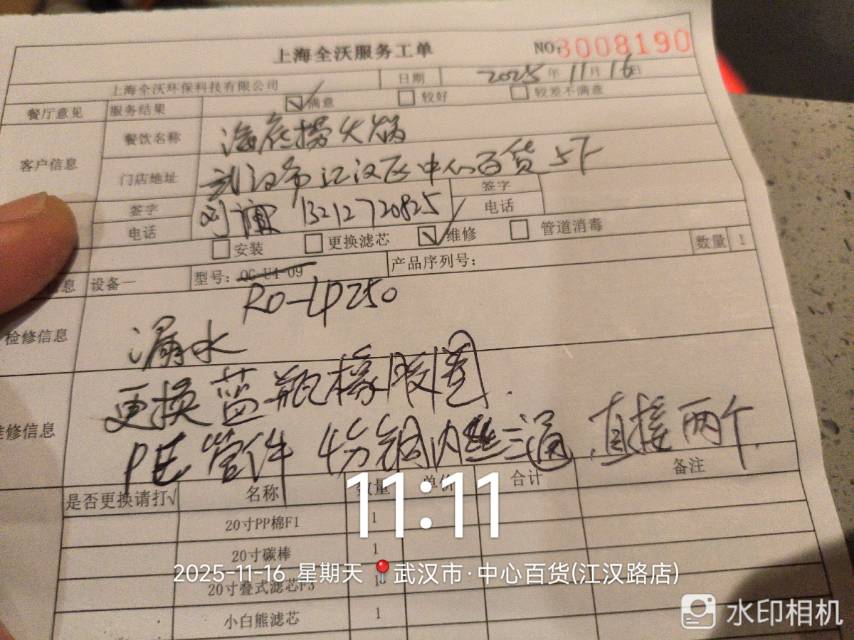 上海全沃服务工单 NO:3008190
上海全沃环保科技有限公司 日期 2025年11月16日
餐厅意见 服务结果 ☑满意 □较好 □较差不满意
客户信息
餐饮名称 海底捞火锅
门店地址 武汉市江汉区中心百货5F
签字 电话 13212720825 签字 电话
□安装 □更换滤芯 ☑维修 □管道消毒
信息 设备一 型号:QG-U4-09 产品序列号: 数量 1
RO-LP250
检修信息 漏水
维修信息 更换蓝瓶橡胶圈.
PE管件 4分铜内丝三通,直接两个.
是否更换请打√ 名称 数量 单价 合计 备注
20寸PP棉F1 1
20寸碳棒 1
20寸叠式滤芯F3 1
小白熊滤芯 1
11:11
2025-11-16 星期天 武汉市·中心百货(江汉路店)
水印相机